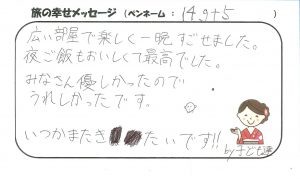 旅の幸せメッセージ (ペンネーム: 14,9+5)
広い部屋で楽しく一晩すごせました。
夜ご飯もおいしくて最高でした。
みなさん優しかったので
うれしかったです。
いつかまたきたいです!!
by子ども達